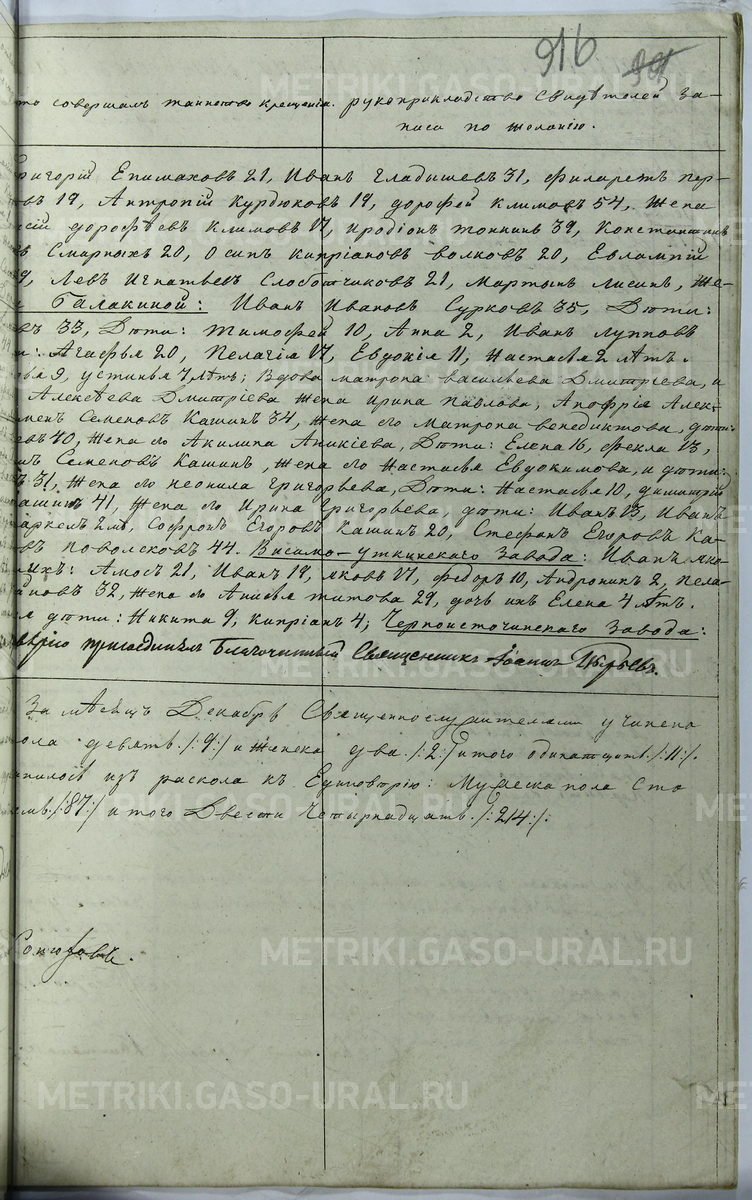 916
99
то совершалъ таинство крещенія. рукоприкладство свидѣтелей за-
писи по желанію.
ригорій Епимаховъ 21, Иванъ Гладышевъ 31, Филаретъ пер-
въ 19, Антропій Курдюковъ 19, дорофей климовъ 54, Жена
сій дорофѣевъ Климовъ 17, иродіонъ тонкинъ 39, Константинъ
въ Смирныхъ 20, Осипъ Кипріановъ волковъ 20, Евлампій
9, Левъ Игнатьевъ Слоботчиковъ 21, Мартынъ лисинъ, Же-
Балакиной: Иванъ Ивановъ Сурковъ 35, Дѣти:
въ 33, Дѣти: Тимофей 10, Анна 2, Иванъ лупповъ
и: Агафья 20, Пелагія 17, Евдокія 11, Настасья 2 лѣтъ.
овья 9, устинья 4 лѣтъ; Вдова матрона васильева Дмитріева, и
Алексѣева Дмитріева жена ирина павлова, Анофрія Алек-
менъ Семеновъ Кашинъ 34, жена его Матрона венедиктова, дѣти
евъ 40, жена его Акилина Аникіева, Дѣти: Елена 16, фекла 13,
нъ Семеновъ Кашинъ, жена его Настасья Евдокимова, и дѣти:
ъ 31, жена его неонила григорьева, Дѣти: Настасья 10, димитрій
кашинъ 41, жена его Ирина григорьева, дѣти: Иванъ 13, Иванъ
аркелъ 2 м., Софронъ Егоровъ Кашинъ 20, Стефанъ Егоровъ Ка-
въ поволсковъ 44. Висимо-уткинскаго Завода: Иванъ яко-
ныхъ: Амосъ 21, Иванъ 19, яковъ 17, федоръ 10, Андроникъ 2, Пела-
ановъ 32, жена его Анисья титова 29, дочь ихъ Елена 4 лѣтъ.
я дѣти: Никита 9, киприанъ 4; Черноисточинскаго Завода:
вѣрію присоединилъ Благочинный Священникъ Іоаннъ
За мѣсяцъ Декабрь Священнослужителями учинена
ола девять ./:9:/ и женска два ./:2:/ итого одинатцать ./:11:/.
инилось изъ раскола къ Единовѣрію: Мужеска пола Сто
емь ./:87:/ итого Двести Четырнадцать ./:214:/.
METRIKI.GASO-URAL.RU
METRIKI.GASO-URAL.RU
METRIKI.GASO-URAL.RU
METRIKI.GASO-URAL.RU
METRIKI.GASO-URAL.RU
METRIKI.GASO-URAL.RU
METRIKI.GASO-URAL.RU